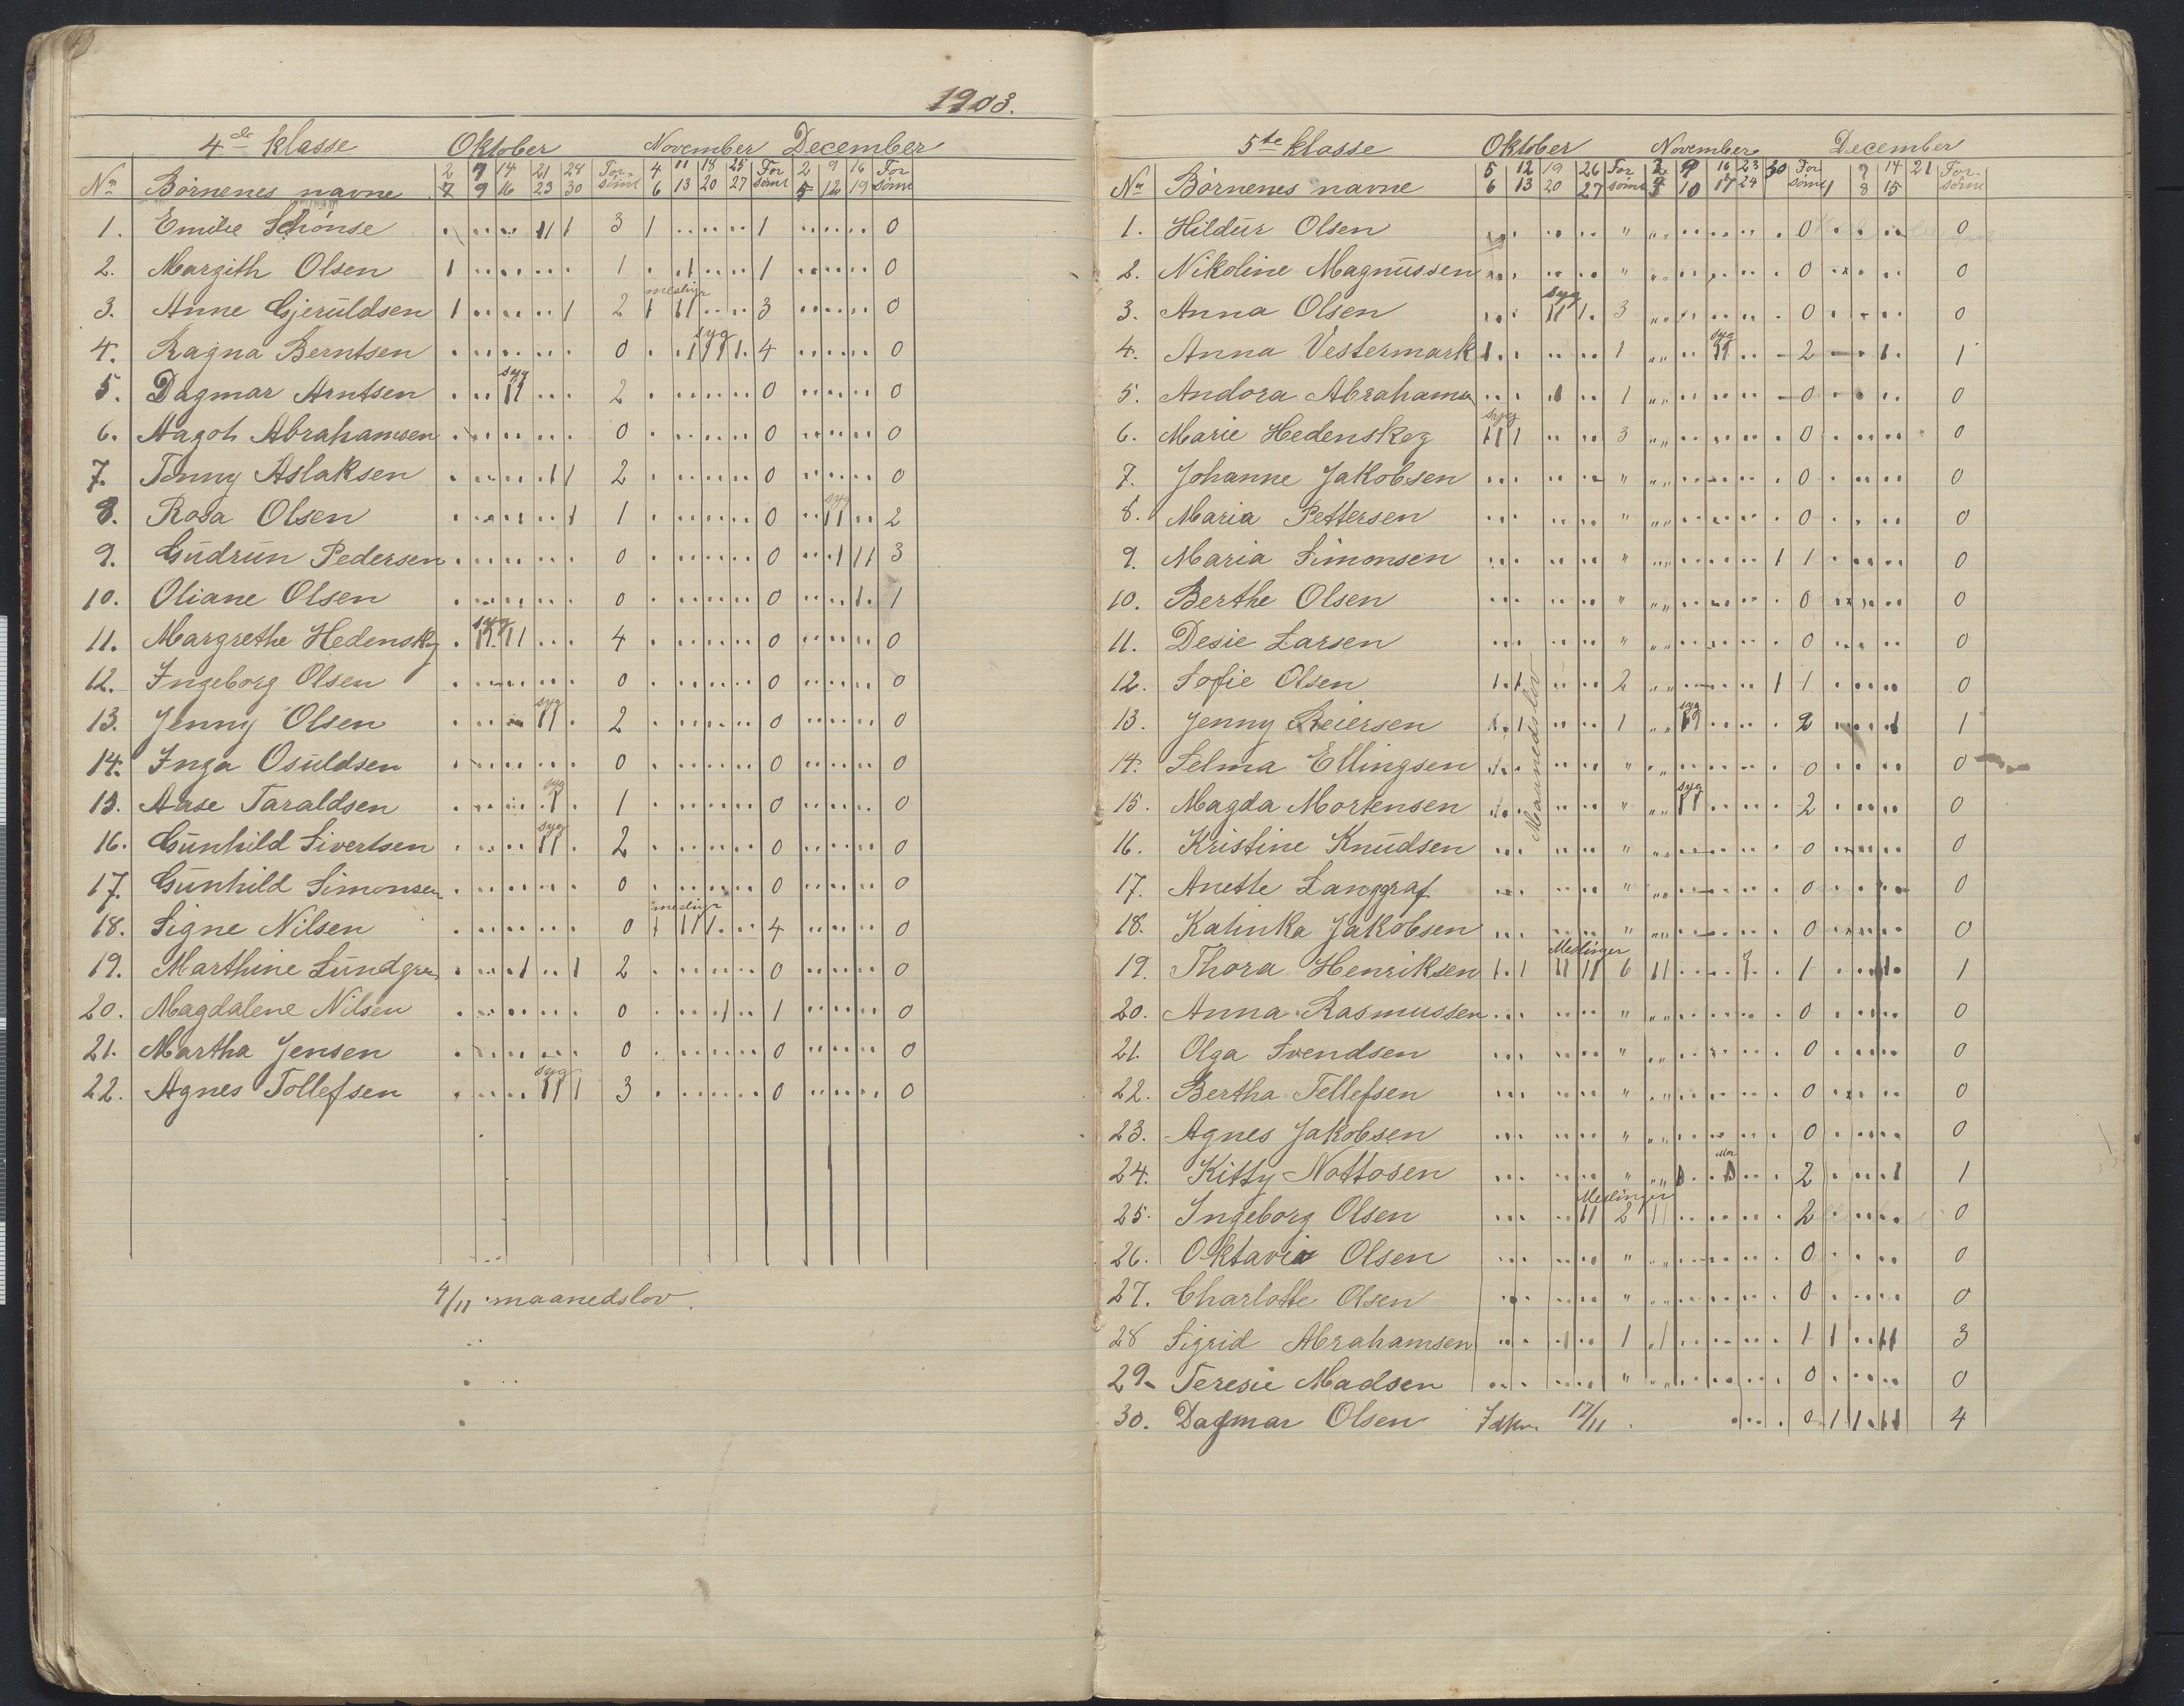 1903.
4de klasse Oktober November December
No Børnenes navne 2 7 7 9 14 16 21 23 28 30 For-sømt 4 6 11 13 18 20 25 27 For sømt 2 5 9 12 16 19 For sømt
1. Emilie Schønse 3 1 0
2. Margith Olsen 1 1 0
meslinger
3. Anne Gjeruldsen 2 3 0
syg
4. Ragna Berntsen 0 4 0
syg
5. Dagmar Arntsen 2 0 0
6. Aagoh Abrahamsen 0 0 0
7. Tonny Aslaksen 2 0 0
syg
8. Rosa Olsen 1 0 2
9. Gudrun Pedersen 0 0 3
10. Oliane Olsen 0 0 1
syg
11. Margrethe Hedensky 4 0 0
12. Ingeborg Olsen 0 0 0
syg
13. Jenny Olsen 2 0 0
14. Inga Osuldsen 0 0 0
syg
15. Aase Taraldsen 1 0 0
syg
16. Gunhild Sivertsen 2 0 0
17. Gunhild Simonsen 0 0 0
meslinger
18. Signe Nilsen 0 4 0
19. Marthine Lundgren 2 0 0
20. Magdalene Nilsen 0 1 0
21. Martha Jensen 0 0 0
syg
22. Agnes Tollefsen 3 0 0
4/11 maanedslov.
5te klasse Oktober November December
No Børnenes navne 5 6 12 13 19 20 26 27 For sømt 2 3 9 10 16 17 23 24 30 For sømt 1 7 8 14 15 21 For-sømt
1. Hildur Olsen " 0 0
2. Nikoline Magnussen " 0 0
syg
3. Anna Olsen 3 0 0
syg
4. Anna Vestermark 1 2 1
5. Andora Abrahams 1 0 0
syg
6. Marie Hedenskog 3 0 0
7. Johanne Jakobsen " 0 0
8. Maria Pettersen " 0 0
9. Maria Simonsen " 1 0
10. Berthe Olsen " 0 0
11. Desie Larsen " 0 0
12. Sofie Olsen 2 1 0
Maanedslov
syg
13. Jenny Reiersen 1 2 1
14. Selma Ellingsen " 0 0
syg
15. Magda Mortensen " 2 0
16. Kristine Knudsen " 0 0
17. Anette Langgraf " 0 0
18. Katinka Jakobsen " 0 0
Meslinger
19. Thora Henriksen 6 1 1
20. Anna Rasmussen " 0 0
21. Olga Svendsen " 0 0
22. Bertha Tellefsen " 0 0
23. Agnes Jakobsen " 0 0
24. Kitty Nottosen " 2 1
Meslinger
25. Ingeborg Olsen 2 2 0
26. Oktavia Olsen " 0 0
27. Charlotte Olsen " 0 0
28 Sigrid Abrahamsen 1 1 3
29. Teresie Madsen " 0 0
30. Dagmar Olsen 17/11 0 4